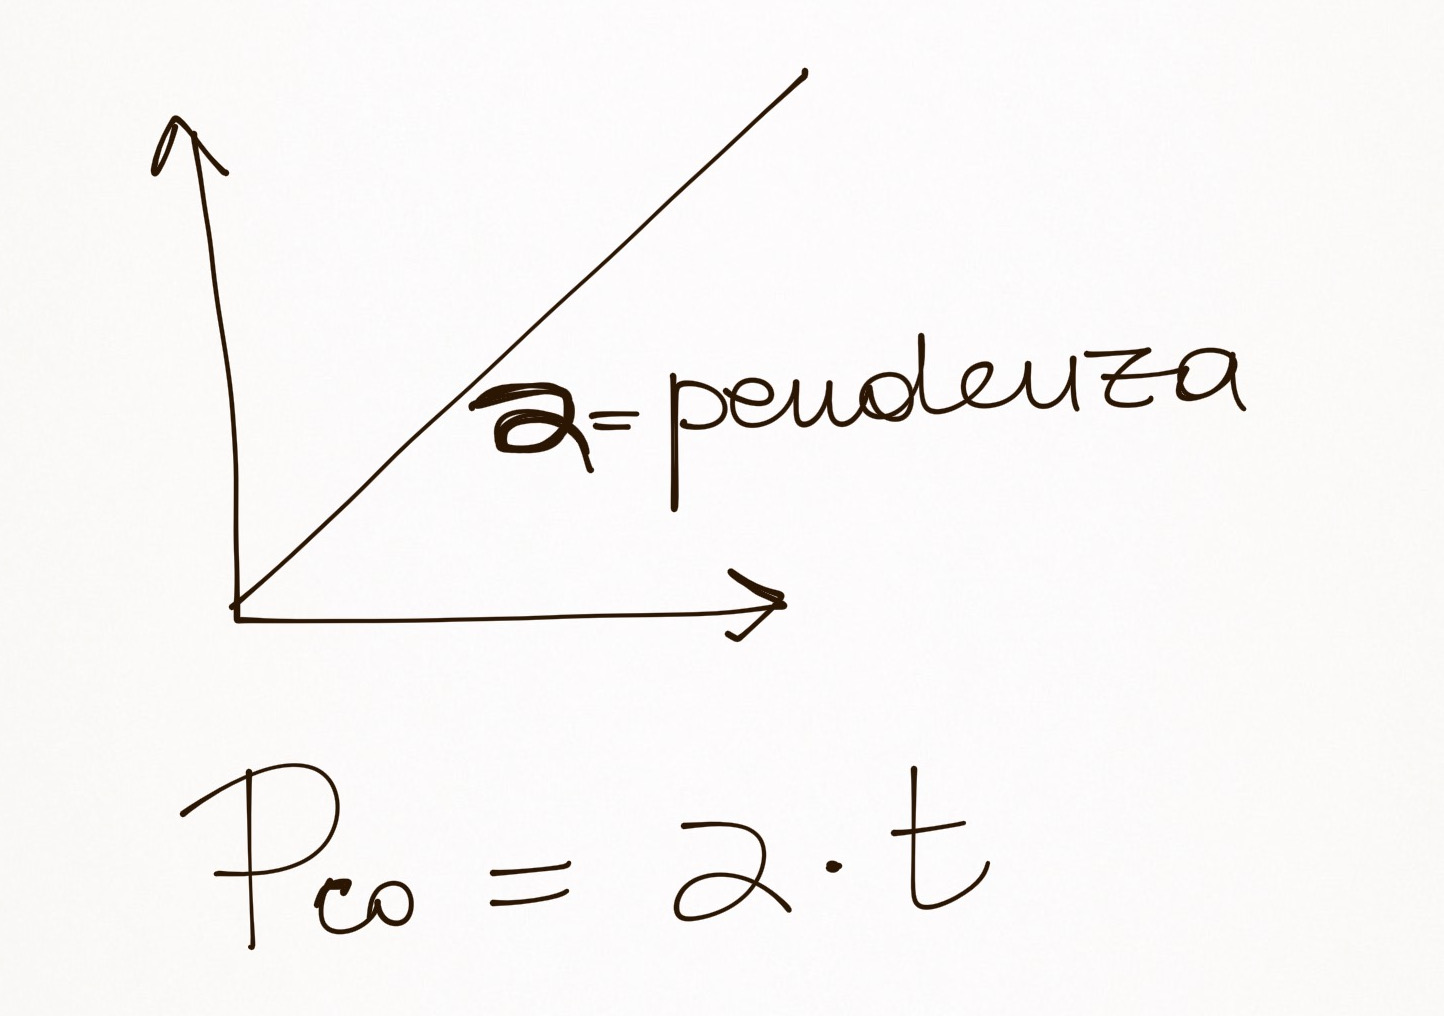 a = pendenza
Pco = a · t